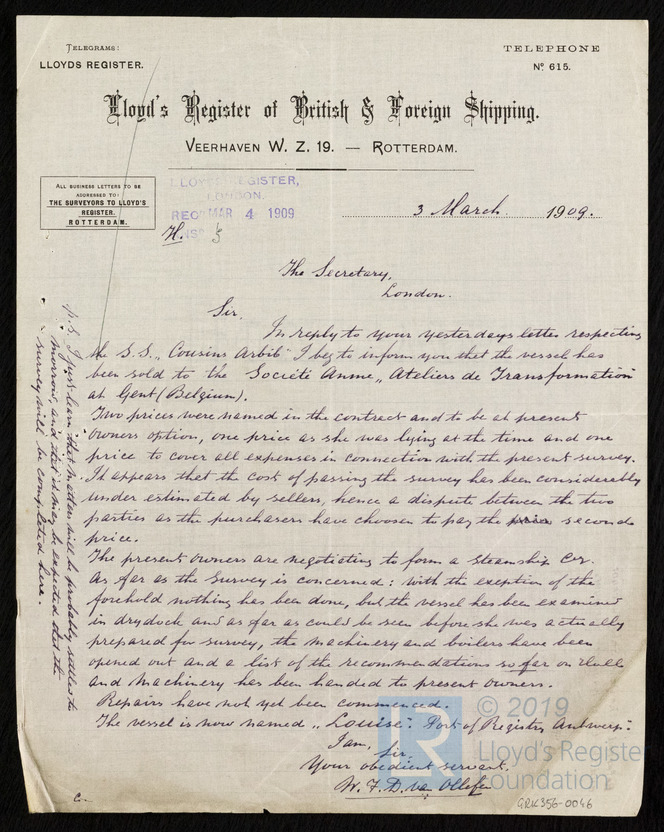 TELEGRAMS:
LLOYDS REGISTER.
TELEPHONE
No 615.
Lloyd's Register of British & Foreign Shipping.
VEERHAVEN W. Z. 19. — ROTTERDAM.
ALL BUSINESS LETTERS TO BE
ADDRESSED TO:
THE SURVEYORS TO LLOYD'S
REGISTER.
ROTTERDAM.
LLOYD'S REGISTER,
LONDON.
REC'D MAR 4 1909
3 March 1909.
The Secretary,
London.
Sir,
In reply to your yesterdays letter respecting
the S.S. „Cousins Arbib" I beg to inform you that the vessel has
been sold to the Société Anme „Ateliers de Transformation"
at Gent (Belgium).
Two prices were named in the contract and to be at present
owners option, one price as she was lying at the time and one
price to cover all expenses in connection with the present survey.
It appears that the cost of passing the survey has been considerably
under estimated by sellers, hence a dispute between the two
parties as the purchasers have choosen to pay the second
price.
The present owners are negotiating to form a steamship Cy.
As far as the survey is concerned: with the exeption of the
forehold nothing has been done, but the vessel has been examined
in drydock and as far as could be seen before she was actually
prepared for survey, the machinery and boilers have been
opened out and a list of the recommendations so far on Hull
and Machinery has been handed to present owners.
Repairs have not yet been commenced.
The vessel is now named „Louise". Port of Registry Antwerp.
I am,
Sir,
Your obedient servant,
W. F. D. van Ollefen
p.S. I just learn that matters will be probably settled to
morrow, and that it may be expected that the
survey will be completed here.
© 2019
Lloyd's Register
Foundation
LR
GRK356-0046